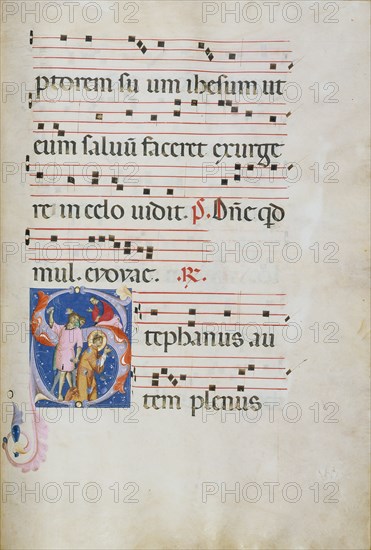 ptorem su um ihesum ut
eum saluū faceret exurge
re in celo uidit. P. Dñe qd
mul. evovae. R.
Stephanus au
tem plenus